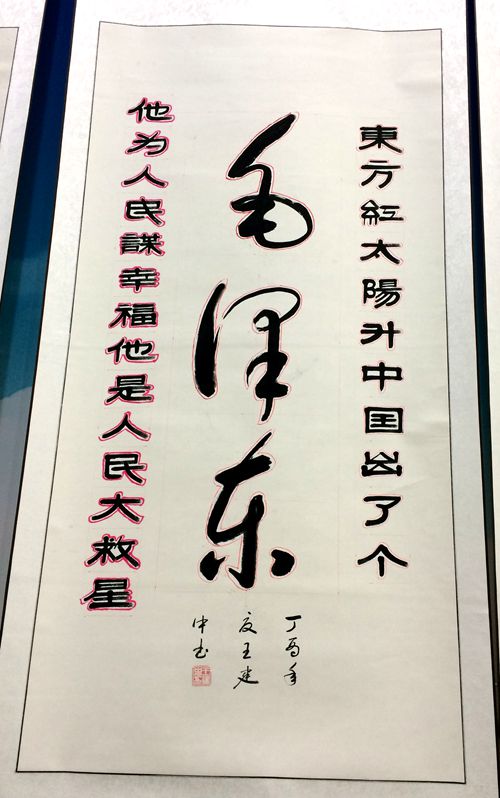 東方紅太陽升中国出了个
毛泽东
他为人民謀幸福他是人民大救星
丁酉年
夏王建
中书